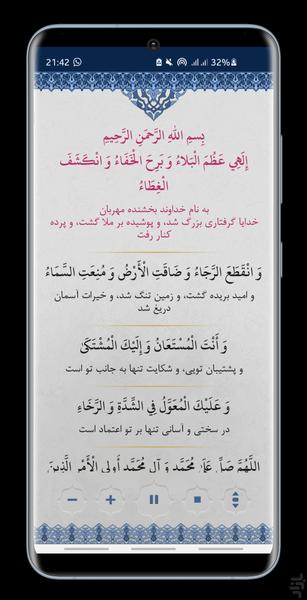 21:42
32%
بِسمِ اللهِ الرَّحمَنِ الرَّحِيمِ
إِلَهِي عَظُمَ الْبَلاءُ وَ بَرِحَ الْخَفَاءُ وَ انْكَشَفَ
الْغِطَاءُ
به نام خداوند بخشنده مهربان
خدایا گرفتاری بزرگ شد، و پوشیده بر ملا گشت، و پرده
کنار رفت
وَ انْقَطَعَ الرَّجَاءُ وَ ضَاقَتِ الْأَرْضُ وَ مُنِعَتِ السَّمَاءُ
و امید بریده گشت، و زمین تنگ شد، و خیرات آسمان
دریغ شد
وَ أَنْتَ الْمُسْتَعَانُ وَ إِلَيْكَ الْمُشْتَكَى
و پشتیبان تویی، و شکایت تنها به جانب تو است
وَ عَلَيْكَ الْمُعَوَّلُ فِي الشِّدَّةِ وَ الرَّخَاءِ
در سختی و آسانی تنها بر تو اعتماد است
اللَّهُمَّ صَلِّ عَلَى مُحَمَّدٍ وَ آلِ مُحَمَّدٍ أُولِي الْأَمْرِ الَّذِينَ
بازار